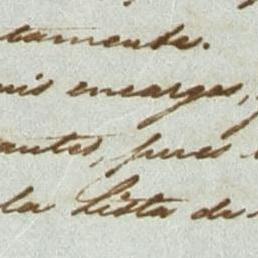 tamente.
mis encargos,
antes, pues
la Lista de